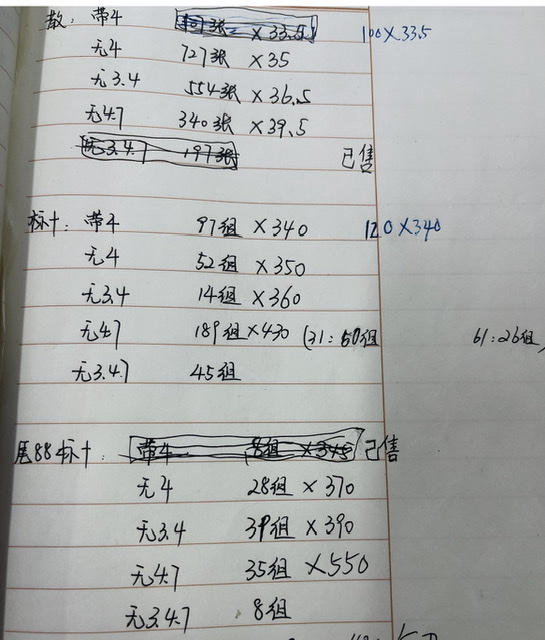 散：带4 张 ×33.5 100×33.5
无4 727张 ×35
无3.4 554张 ×36.5
无4.7 340张 ×39.5
无3.4.7 197张 已售
标十：带4 97组 ×340 120×340
无4 52组 ×350
无3.4 14组 ×360
无4.7 189组 ×430 (31:50组 61:26组)
无3.4.7 45组
尾88标十：带4 8组 ×345 已售
无4 28组 ×370
无3.4 39组 ×390
无4.7 35组 ×550
无3.4.7 8组